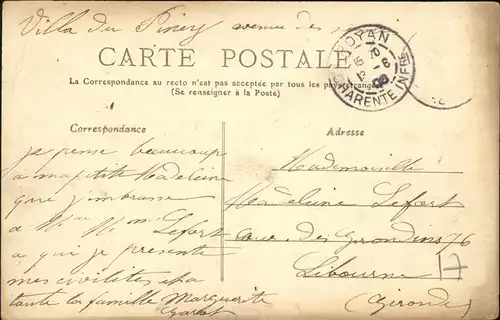 Villa du Piney avenue des
CARTE POSTALE
La Correspondance au recto n'est pas acceptée par tous les pays étrangers
(Se renseigner à la Poste)
ROYAN
CHARENTE INFRE
Correspondance
Adresse
je pense beaucoup
a ma ptite Madeleine
que j'embrasse
a Mr Mme Lefort
a qui je presente
mes civilités et a
toute la famille Marguerite
Mademoiselle
Madeleine Lefort
cour des Girondins 76
Libourne
(Gironde)